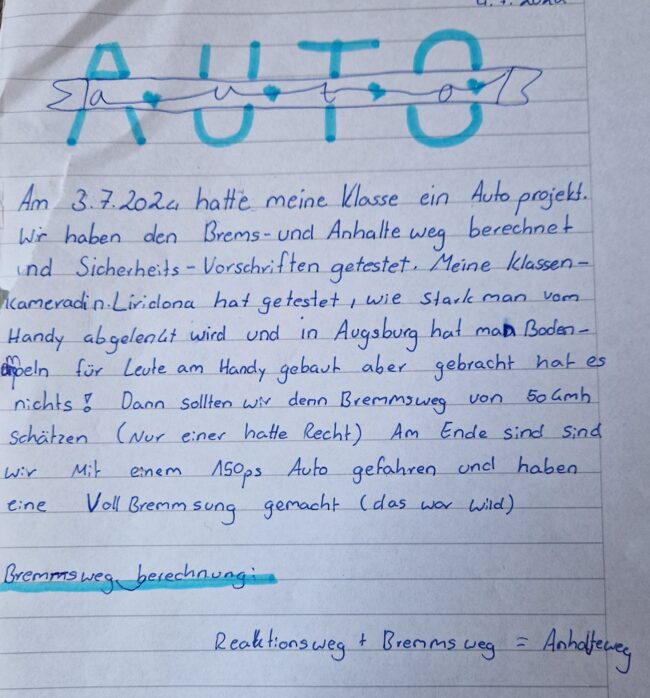 AUTO
auto
Am 3.7.2024 hatte meine Klasse ein Auto projekt.
Wir haben den Brems-und Anhalte weg berechnet
und Sicherheits-Vorschriften getestet. Meine Klassen-
kameradin.Liridona hat getestet, wie stark man vom
Handy abgelenkt wird und in Augsburg hat man Boden-
mpeln für Leute am Handy gebaut aber gebracht hat es
nichts! Dann sollten wir denn Bremmsweg von 50 kmh
schätzen (Nur einer hatte Recht) Am Ende sind sind
wir Mit einem 150ps Auto gefahren und haben
eine Voll Bremmsung gemacht (das war wild)
Bremmsweg berechnung:
Reaktionsweg + Bremms weg = Anhalteweg